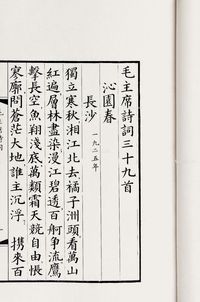 毛主席詩詞三十九首
沁園春
長沙 一九二五年
獨立寒秋湘江北去橘子洲頭看萬山
紅遍層林盡染漫江碧透百舸爭流鷹
擊長空魚翔淺底萬類霜天競自由悵
寥廓問蒼茫大地誰主沉浮 攜來百